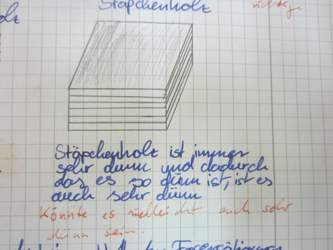 Stäpchenholz
Stäpchenholz ist immer
sehr dünn und dadurch
das es so dünn ist, ist es
auch sehr dünn
Könnte es vielleicht auch sehr
dünn sein.